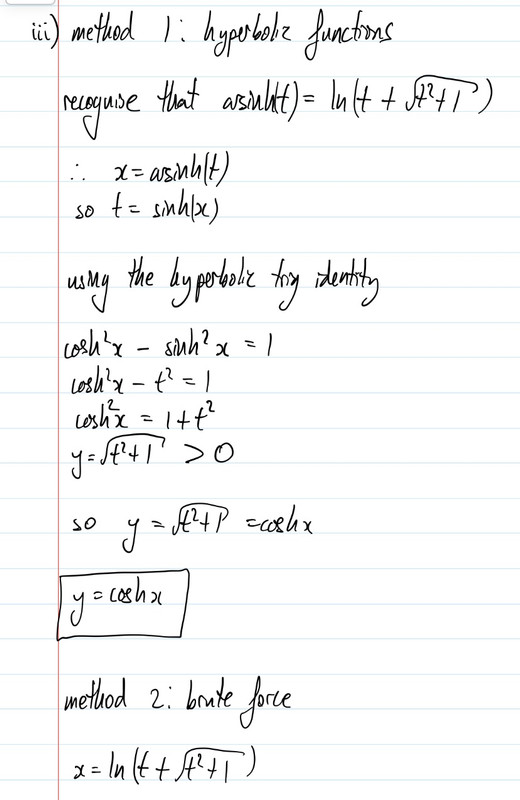 iii) method 1: hyperbolic functions
recognise that arsinh(t) = ln(t + √(t²+1))
∴ x = arsinh(t)
so t = sinh(x)
using the hyperbolic trig identity
cosh²x − sinh²x = 1
cosh²x − t² = 1
cosh²x = 1 + t²
y = √(t²+1) > 0
so y = √(t²+1) = cosh x
y = cosh x
method 2: brute force
x = ln(t + √(t²+1))